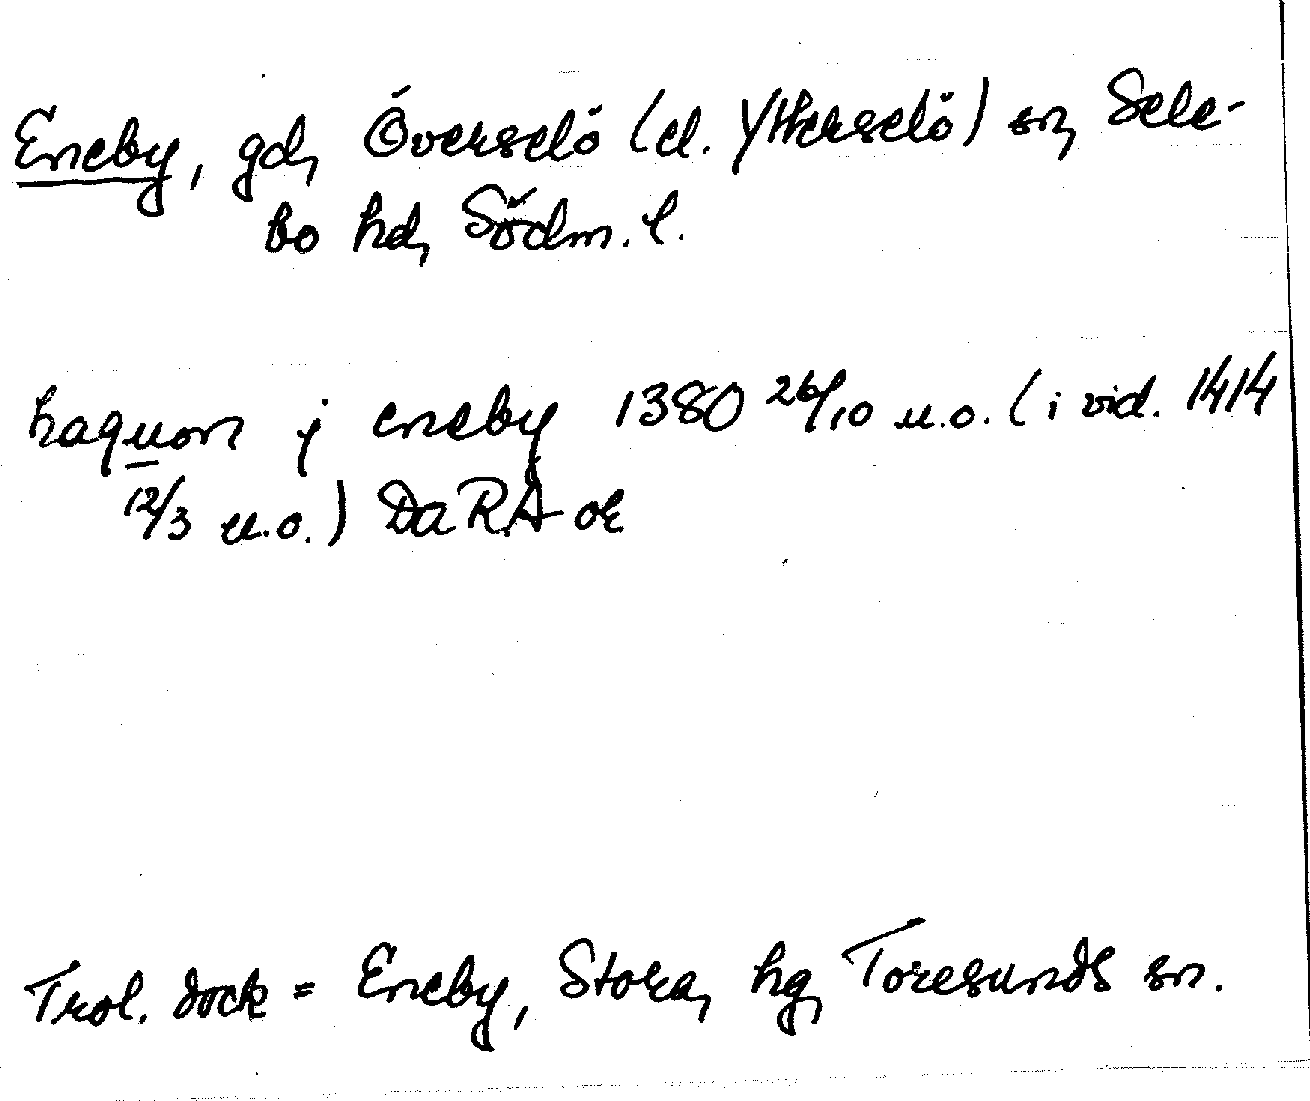 Eneby, gd, Överselö (el. Ytterselö) sn, Sele-
bo hd, Södm. l.
haquon j eneby 1380 26/10 u.o. (i vid. 1414
12/3 u.o.) Da RA or
Trol. dock = Eneby, Stora, hg, Toresunds sn.